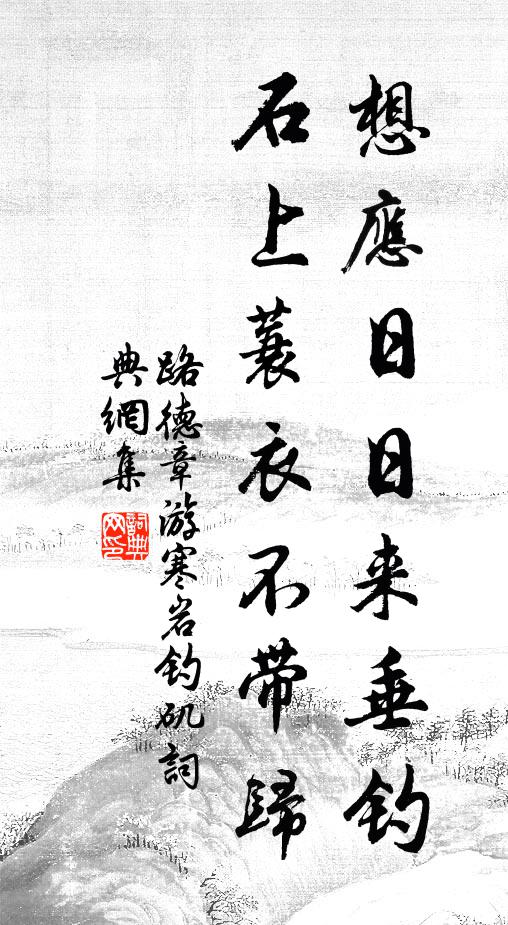 想應日日来垂钓
石上蓑衣不带歸
路德章游寒岩钓矶詞
典網集
詞典
网印